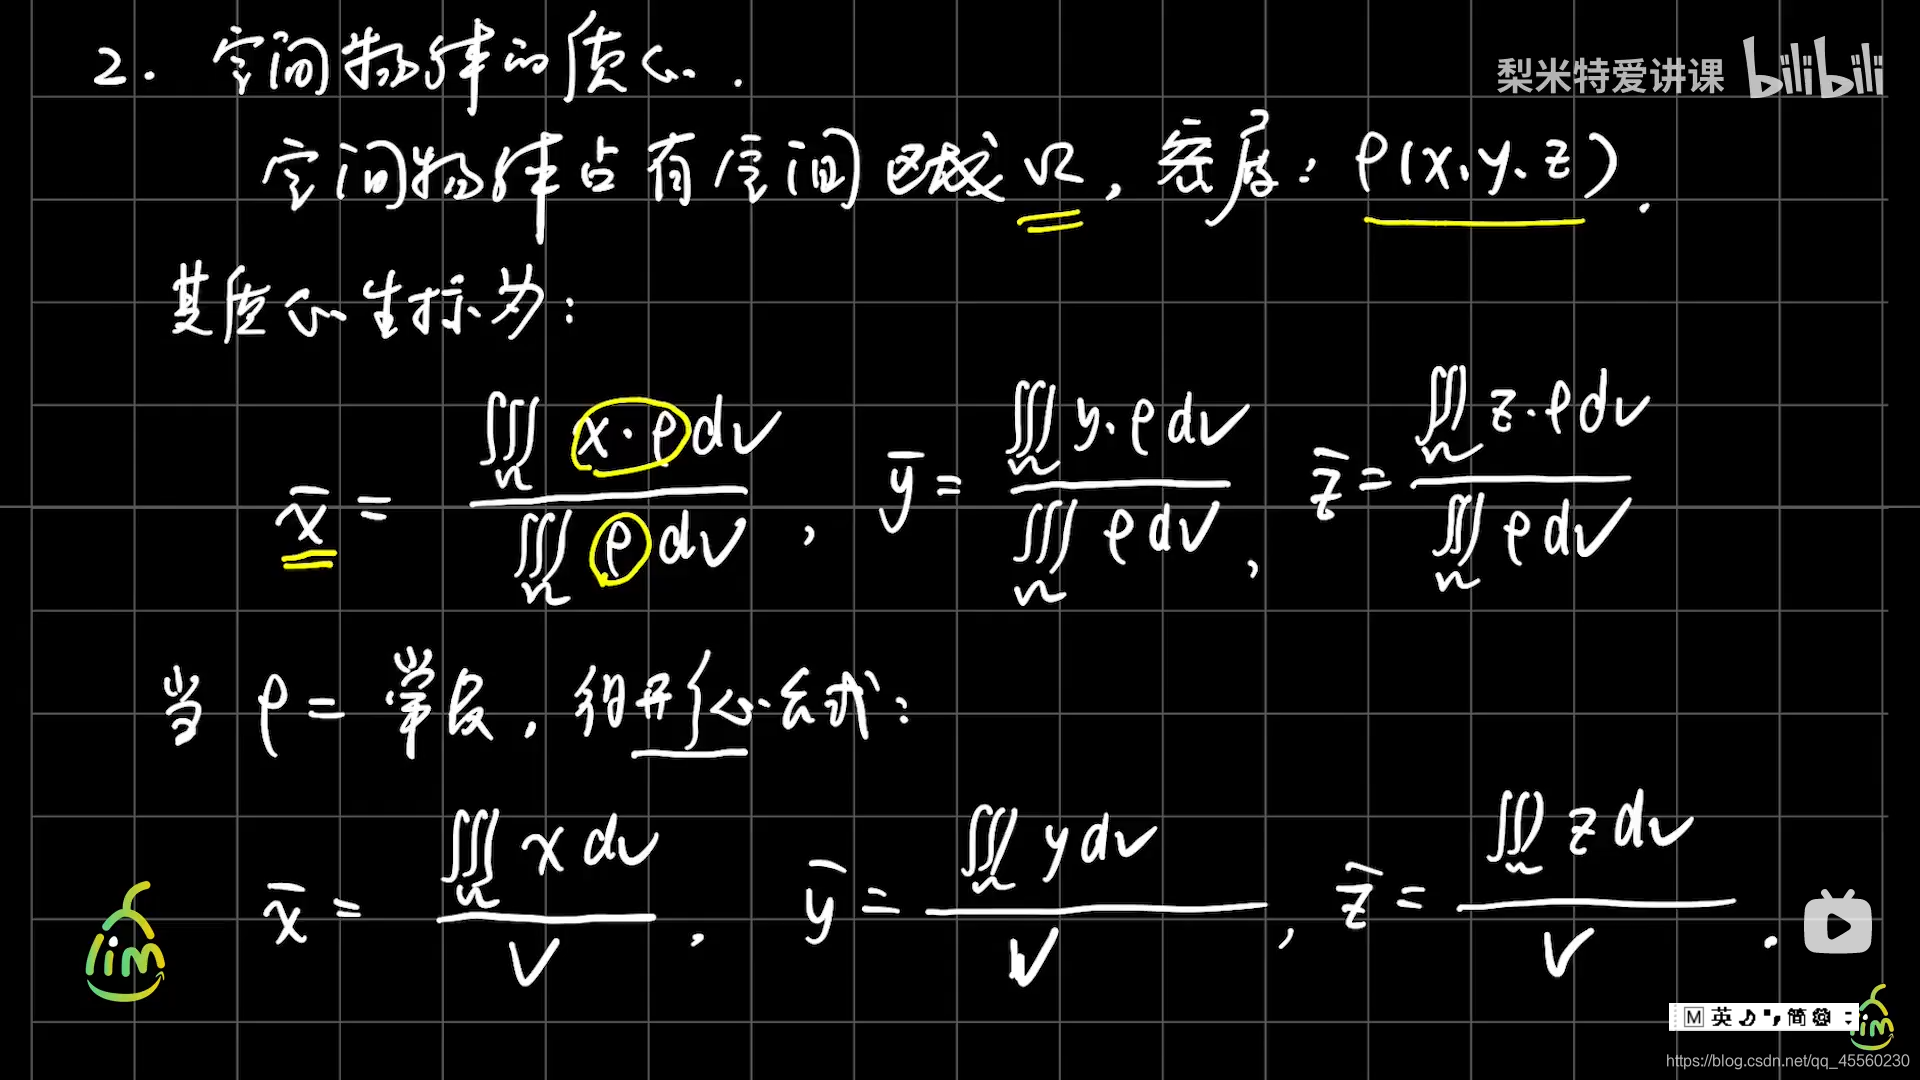 梨米特爱讲课 bilibili
2. 空间物体的质心.
空间物体占有空间区域Ω, 密度: ρ(x、y、z).
其质心坐标为:
x̄ = ∭_Ω x·ρdv / ∭_Ω ρdv , ȳ = ∭_Ω y·ρdv / ∭_Ω ρdv , z̄ = ∭_Ω z·ρdv / ∭_Ω ρdv
当 ρ = 常数, 得形心公式:
x̄ = ∭_Ω xdv / V , ȳ = ∭_Ω ydv / V , z̄ = ∭_Ω zdv / V .
lim
M 英 简
lim
https://blog.csdn.net/qq_45560230